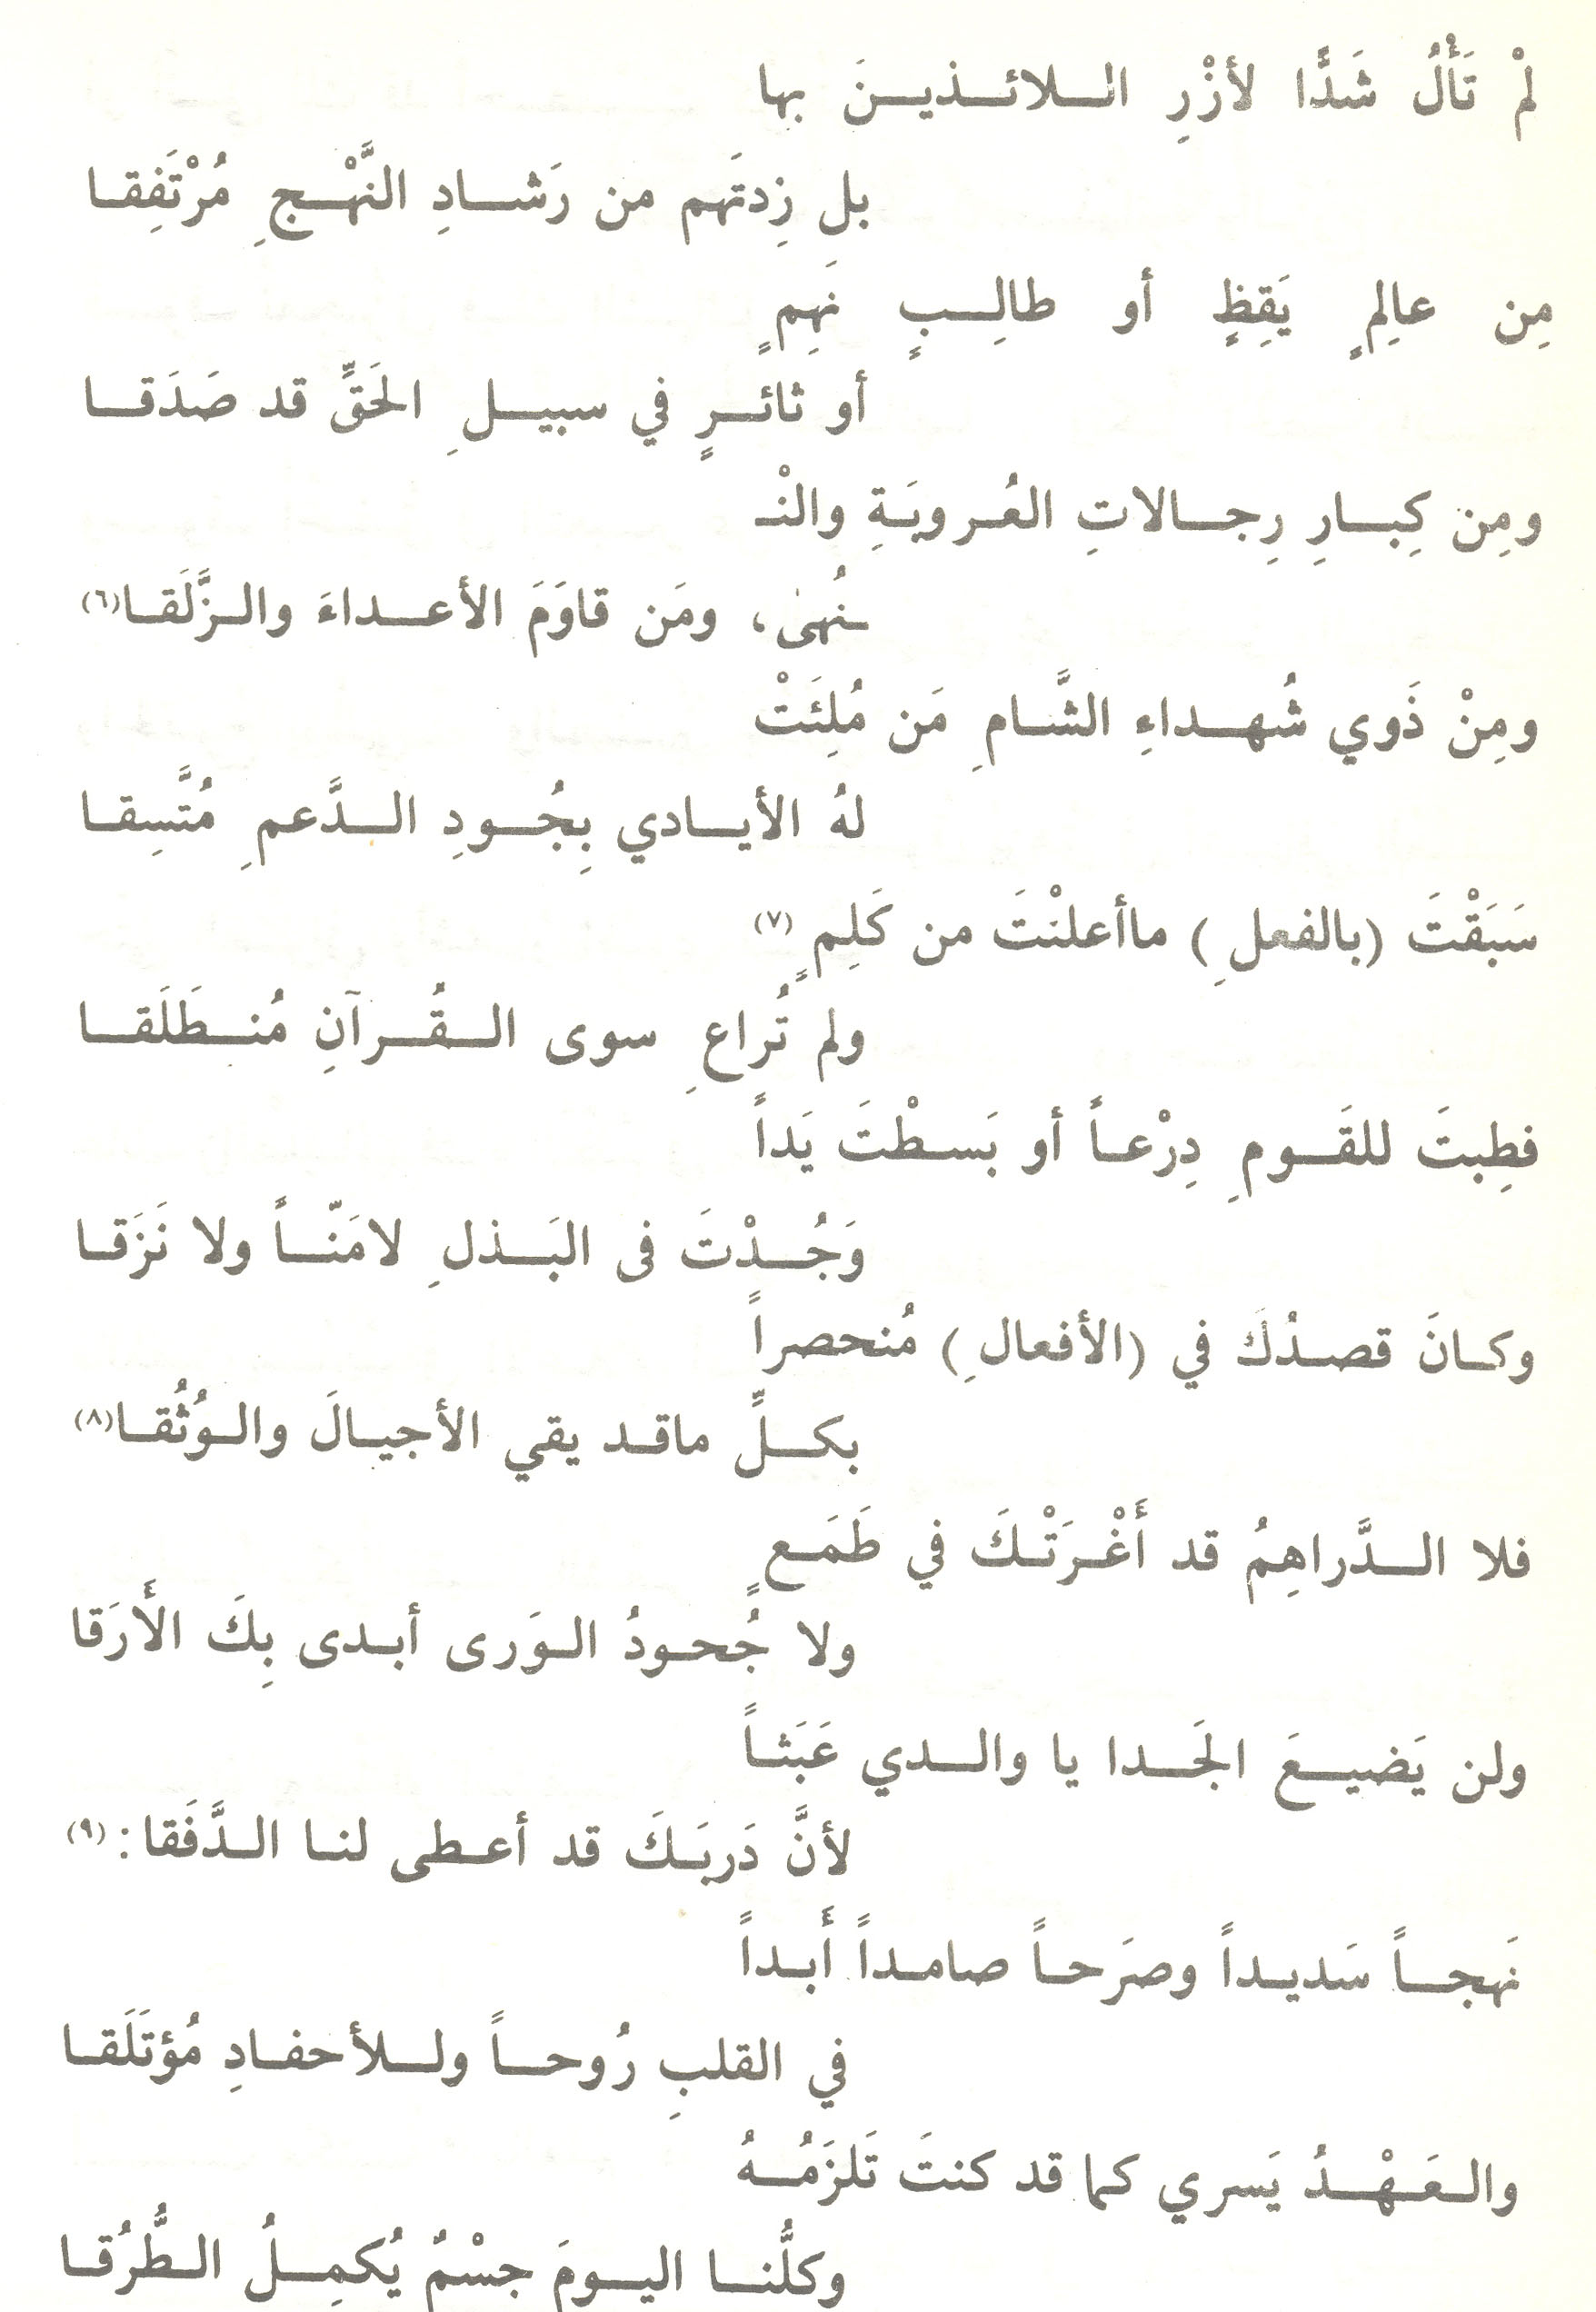 لمْ تَأْلُ شَدًّا لأزْرِ اللائذينَ بها
بل زِدتَهم من رَشادِ النَّهْجِ مُرْتَفِقا
مِن عالِمٍ يَقِظٍ أو طالِبٍ نَهِمٍ
أو ثائرٍ في سبيلِ الحَقِّ قد صَدَقا
ومِن كِبارِ رِجالاتِ العُروبَةِ والنْـ
ـنُهىٰ، ومَن قاوَمَ الأعداءَ والزَّلَقا(٦)
ومِنْ ذَوي شُهداءِ الشَّامِ مَن مُلِئَتْ
لهُ الأيادي بِجُودِ الدَّعمِ مُتَّسِقا
سَبَقْتَ (بالفعلِ) ماأعلنْتَ من كَلِمٍ(٧)
ولم تُراعِ سوى القُرآنِ مُنطَلَقا
فطِبتَ للقَومِ دِرْعاً أو بَسطْتَ يَداً
وَجُدْتَ فى البَذلِ لامَنّاً ولا نَزَقا
وكانَ قصدُكَ في (الأفعالِ) مُنحصراً
بكلِّ ماقد يقي الأجيالَ والوُثُقا(٨)
فلا الدَّراهِمُ قد أَغْرَتْكَ في طَمَعٍ
ولا جُحودُ الوَرى أبدى بِكَ الأَرَقا
ولن يَضيعَ الجَدا يا والدي عَبَثاً
لأنَّ دَربَكَ قد أعطى لنا الدَّفَقا:(٩)
نَهجاً سَديداً وصرَحاً صامداً أَبداً
في القلبِ رُوحاً وللأحفادِ مُؤتَلَقا
والعَهْدُ يَسري كما قد كنتَ تَلزَمُهُ
وكلُّنا اليومَ جسْمٌ يُكمِلُ الطُّرُقا